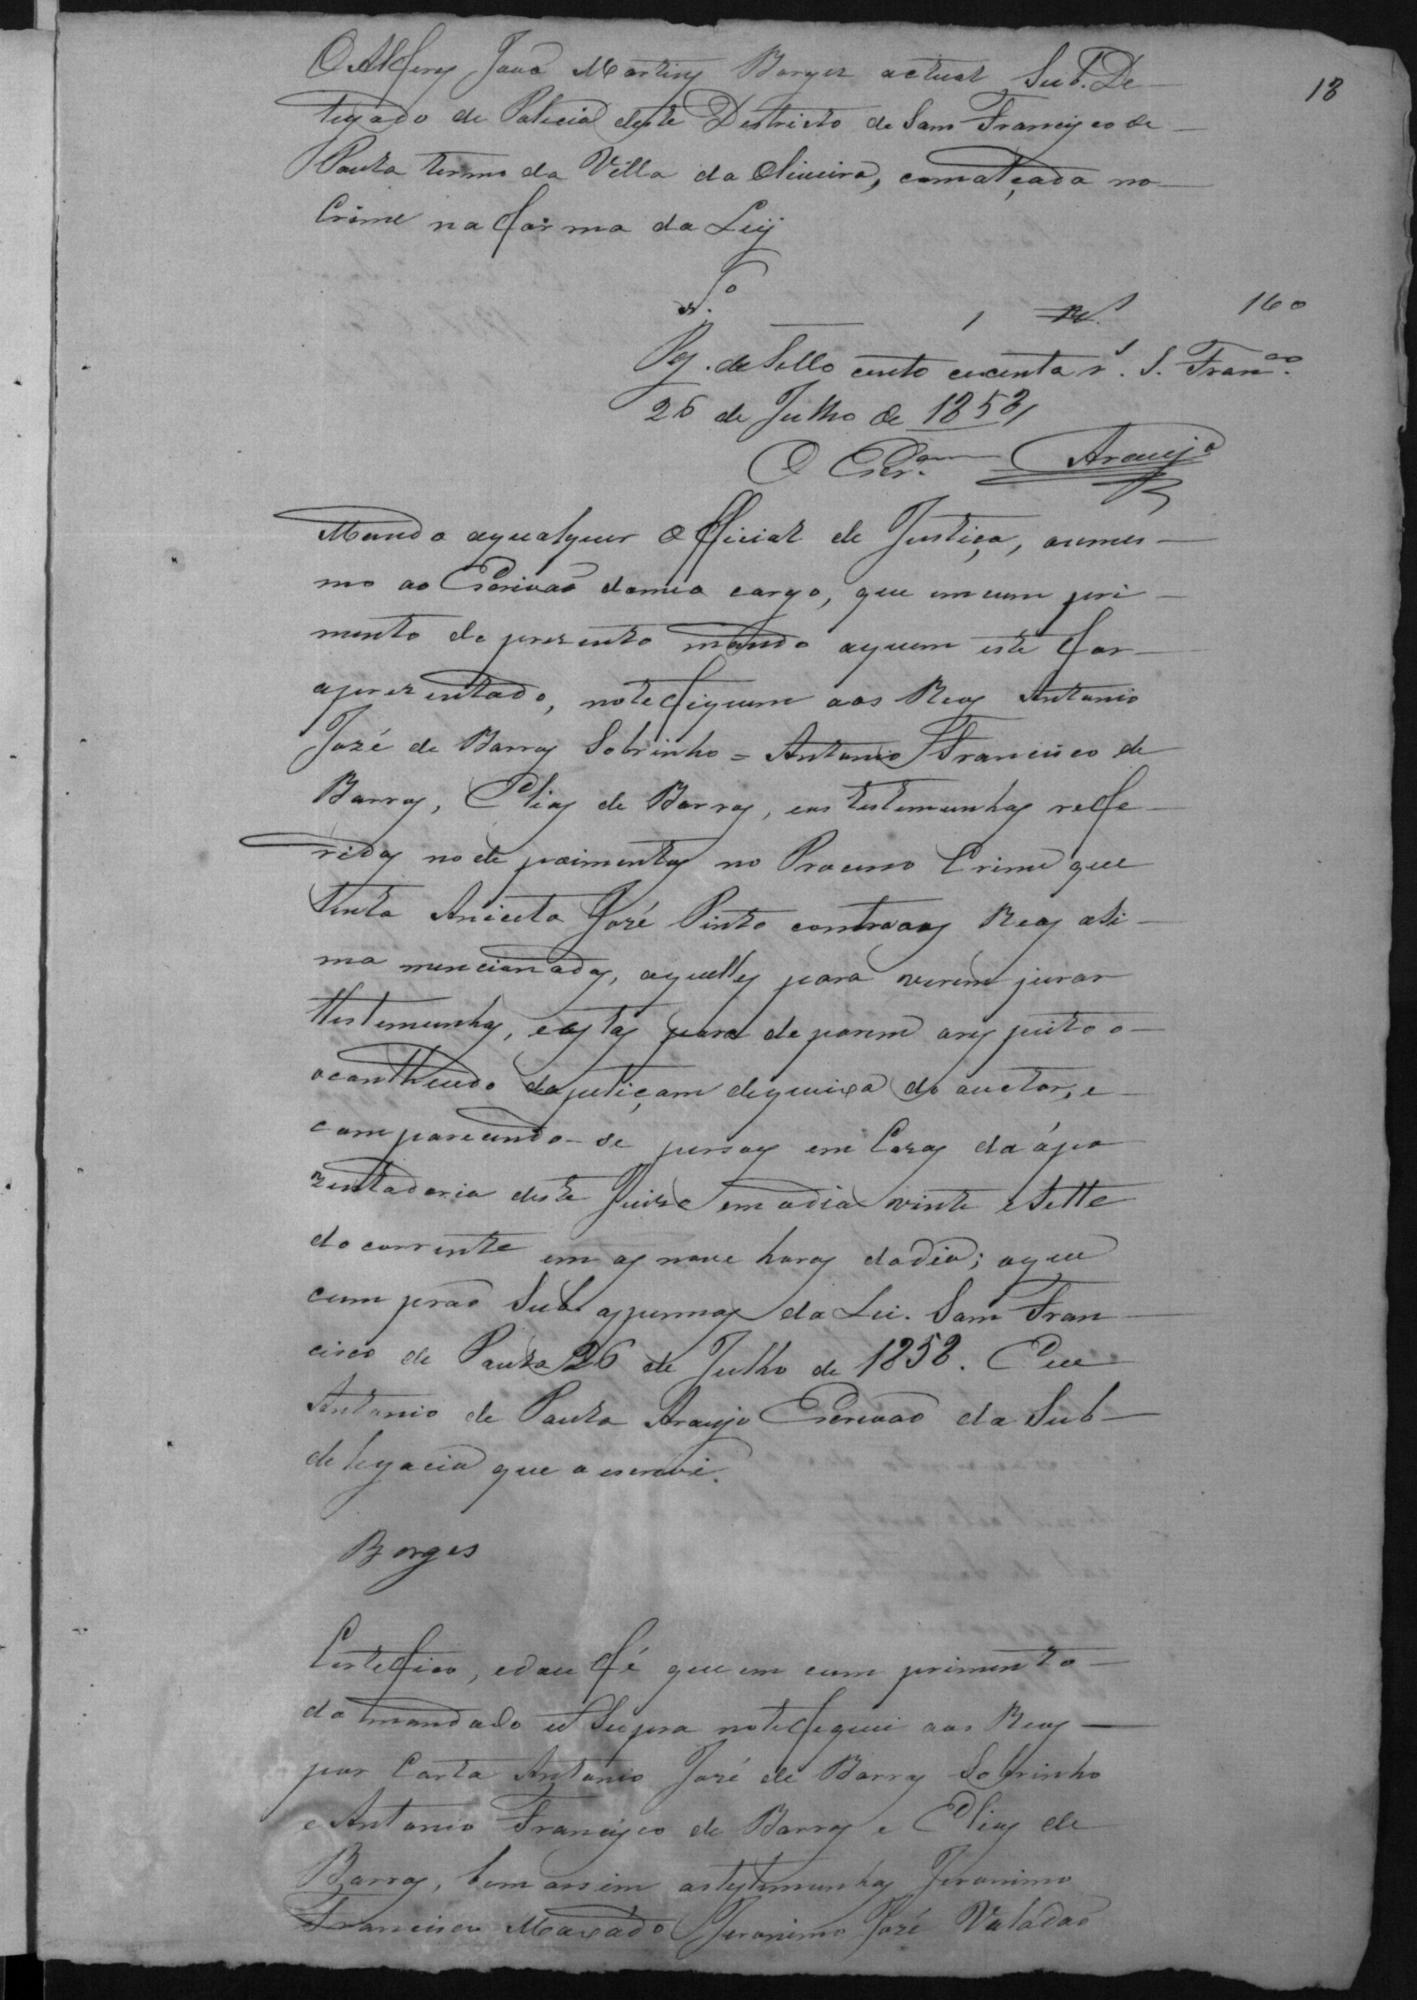 18
O Alferes Joaõ Martins Borges actual Sub. De-
legado de Policia deste Destricto de Sam Francisco de
Paula termo da Villa da Oliveira, com alçada no
Crime na forma da Ley
N.º 1 Rs. 160
Pg. de Sello cento e secenta r.s S. Fran.co
26 de Julho de 1858
O Escr.am Araujo
Mando aqualquer Official de Justiça, oumes-
mo ao Escrivaõ demeo cargo, que emcumpri-
mento do prezente mando aquem este for
aprezentado, notefiquem aos Reos Antonio
José de Barros Sobrinho = Antonio Francisco de
Barros, Elias de Barros, eas testemunhas refe-
ridas node poimentos no Processo Crime que
tenta Aniceto José Pinto contraos Reos asi-
ma mencionados, aquelles para verem jurar
testemunhas, eestas para deporem arespeito o
ocontheudo dapetiçam dequeixa do auctor, e
comparecendo-se persoas em Cazas da apo
zentadoria deste Juizo em odia vinte e sette
do corrente em as nove horas dodia; oque
cumpraõ Sub aspennas da Lei. Sam Fran
cisco de Paula 26 de Julho de 1858. Eu
Antonio de Paula Araujo Escrivaõ da Sub-
delegacia que o escrevi.
Borges
Certefico, edou fé que em cumprimento
do mandado ut Supra notefiquei aos Reos
por Carta Antonio José de Barros Sobrinho
e Antonio Francisco de Barros e Elias de
Barros, bem assim astestemunhas Jeronimo
Francisco Maxado Jeronimo José Valadaõ